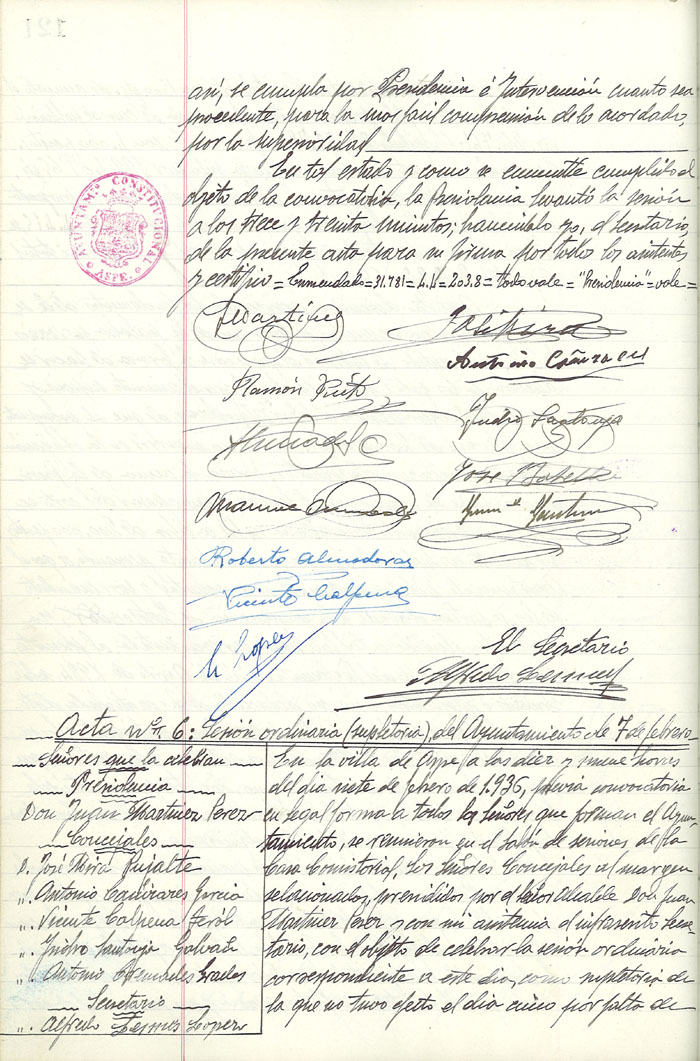 así, se cumpla por Presidencia é Intervención cuanto sea
procedente, para la mas fácil comprension de lo acordado,
por la superioridad
En tal estado y como se encuentre cumplido el
objeto de la convocatoria, la Presidencia levantó la sesión
a las trece y treinta minutos; haciendolo yo, el secretario,
de la presente acta para su firma por todos los asistentes
y certifico = Enmendado = 31.781 = = todo vale = "Presidencia" = vale =
AYUNTAMTO. CONSTITUCIONAL
ASPE.
JMartinez
Antonio Cañizares
Ramón Prieto
Isidro Santonja
José
Manuel
Roberto Almodovar
Vicente Calpena
López
El Secretario
Alfredo Lesmes
Acta nº. 6: Sesión ordinaria (supletoria), del Ayuntamiento de 7 de febrero
Señores que la celebran
Presidencia
Don Juan Martinez Perez
Concejales
D. José Mira Pujalte
". Antonio Cañizares Garcia
". Vicente Calpena
". Isidro Santonja Galvañ
". Antonio Prados
Secretario
". Alfredo Lesmes Lopez
En la villa de Aspe, a las diez y nueve horas
del día siete de febrero de 1.936, previa convocatoria
en legal forma a todos los señores que forman el Ayun-
tamiento, se reunieron en el Salón de sesiones de la
Casa Consistorial, los señores Concejales al margen
relacionados, presididos por el señor Alcalde Don Juan
Martinez Perez y con mi asistencia el infrascrito Secre-
tario, con el objeto de celebrar la sesión ordinaria
correspondiente a este dia, como supletoria de
la que no tuvo efecto el dia cinco por falta de